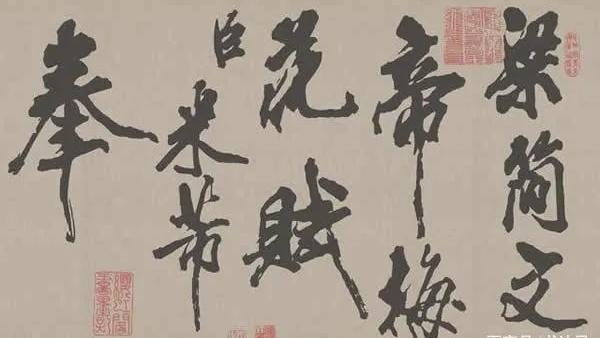 梁簡文
帝梅
花賦
臣米芾
奉